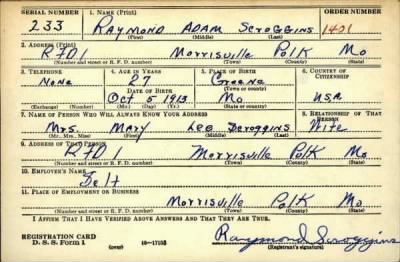 SERIAL NUMBER 1. NAME (Print) ORDER NUMBER
233 RAYMOND ADAM SCROGGINS 1401
(First) (Middle) (Last)
2. ADDRESS (Print)
RFD1 Morrisville Polk Mo
(Number and street or R. F. D. number) (Town) (County) (State)
3. TELEPHONE 4. AGE IN YEARS 5. PLACE OF BIRTH 6. COUNTRY OF CITIZENSHIP
None 27 Greene
DATE OF BIRTH (Town or county)
Oct 5 1913 Mo U.S.A
(Exchange) (Number) (Mo.) (Day) (Yr.) (State or country)
7. NAME OF PERSON WHO WILL ALWAYS KNOW YOUR ADDRESS 8. RELATIONSHIP OF THAT PERSON
Mrs. Mary Lee Scroggins Wife
(Mr., Mrs., Miss) (First) (Middle) (Last)
9. ADDRESS OF THAT PERSON
RFD1 Morrisville Polk Mo
(Number and street or R. F. D. number) (Town) (County) (State)
10. EMPLOYER'S NAME
Self
11. PLACE OF EMPLOYMENT OR BUSINESS
Morrisville Polk Mo
(Number and street or R. F. D. number) (Town) (County) (State)
I AFFIRM THAT I HAVE VERIFIED ABOVE ANSWERS AND THAT THEY ARE TRUE.
REGISTRATION CARD
D. S. S. Form 1 (over) Raymond Scroggins
(Registrant's signature)